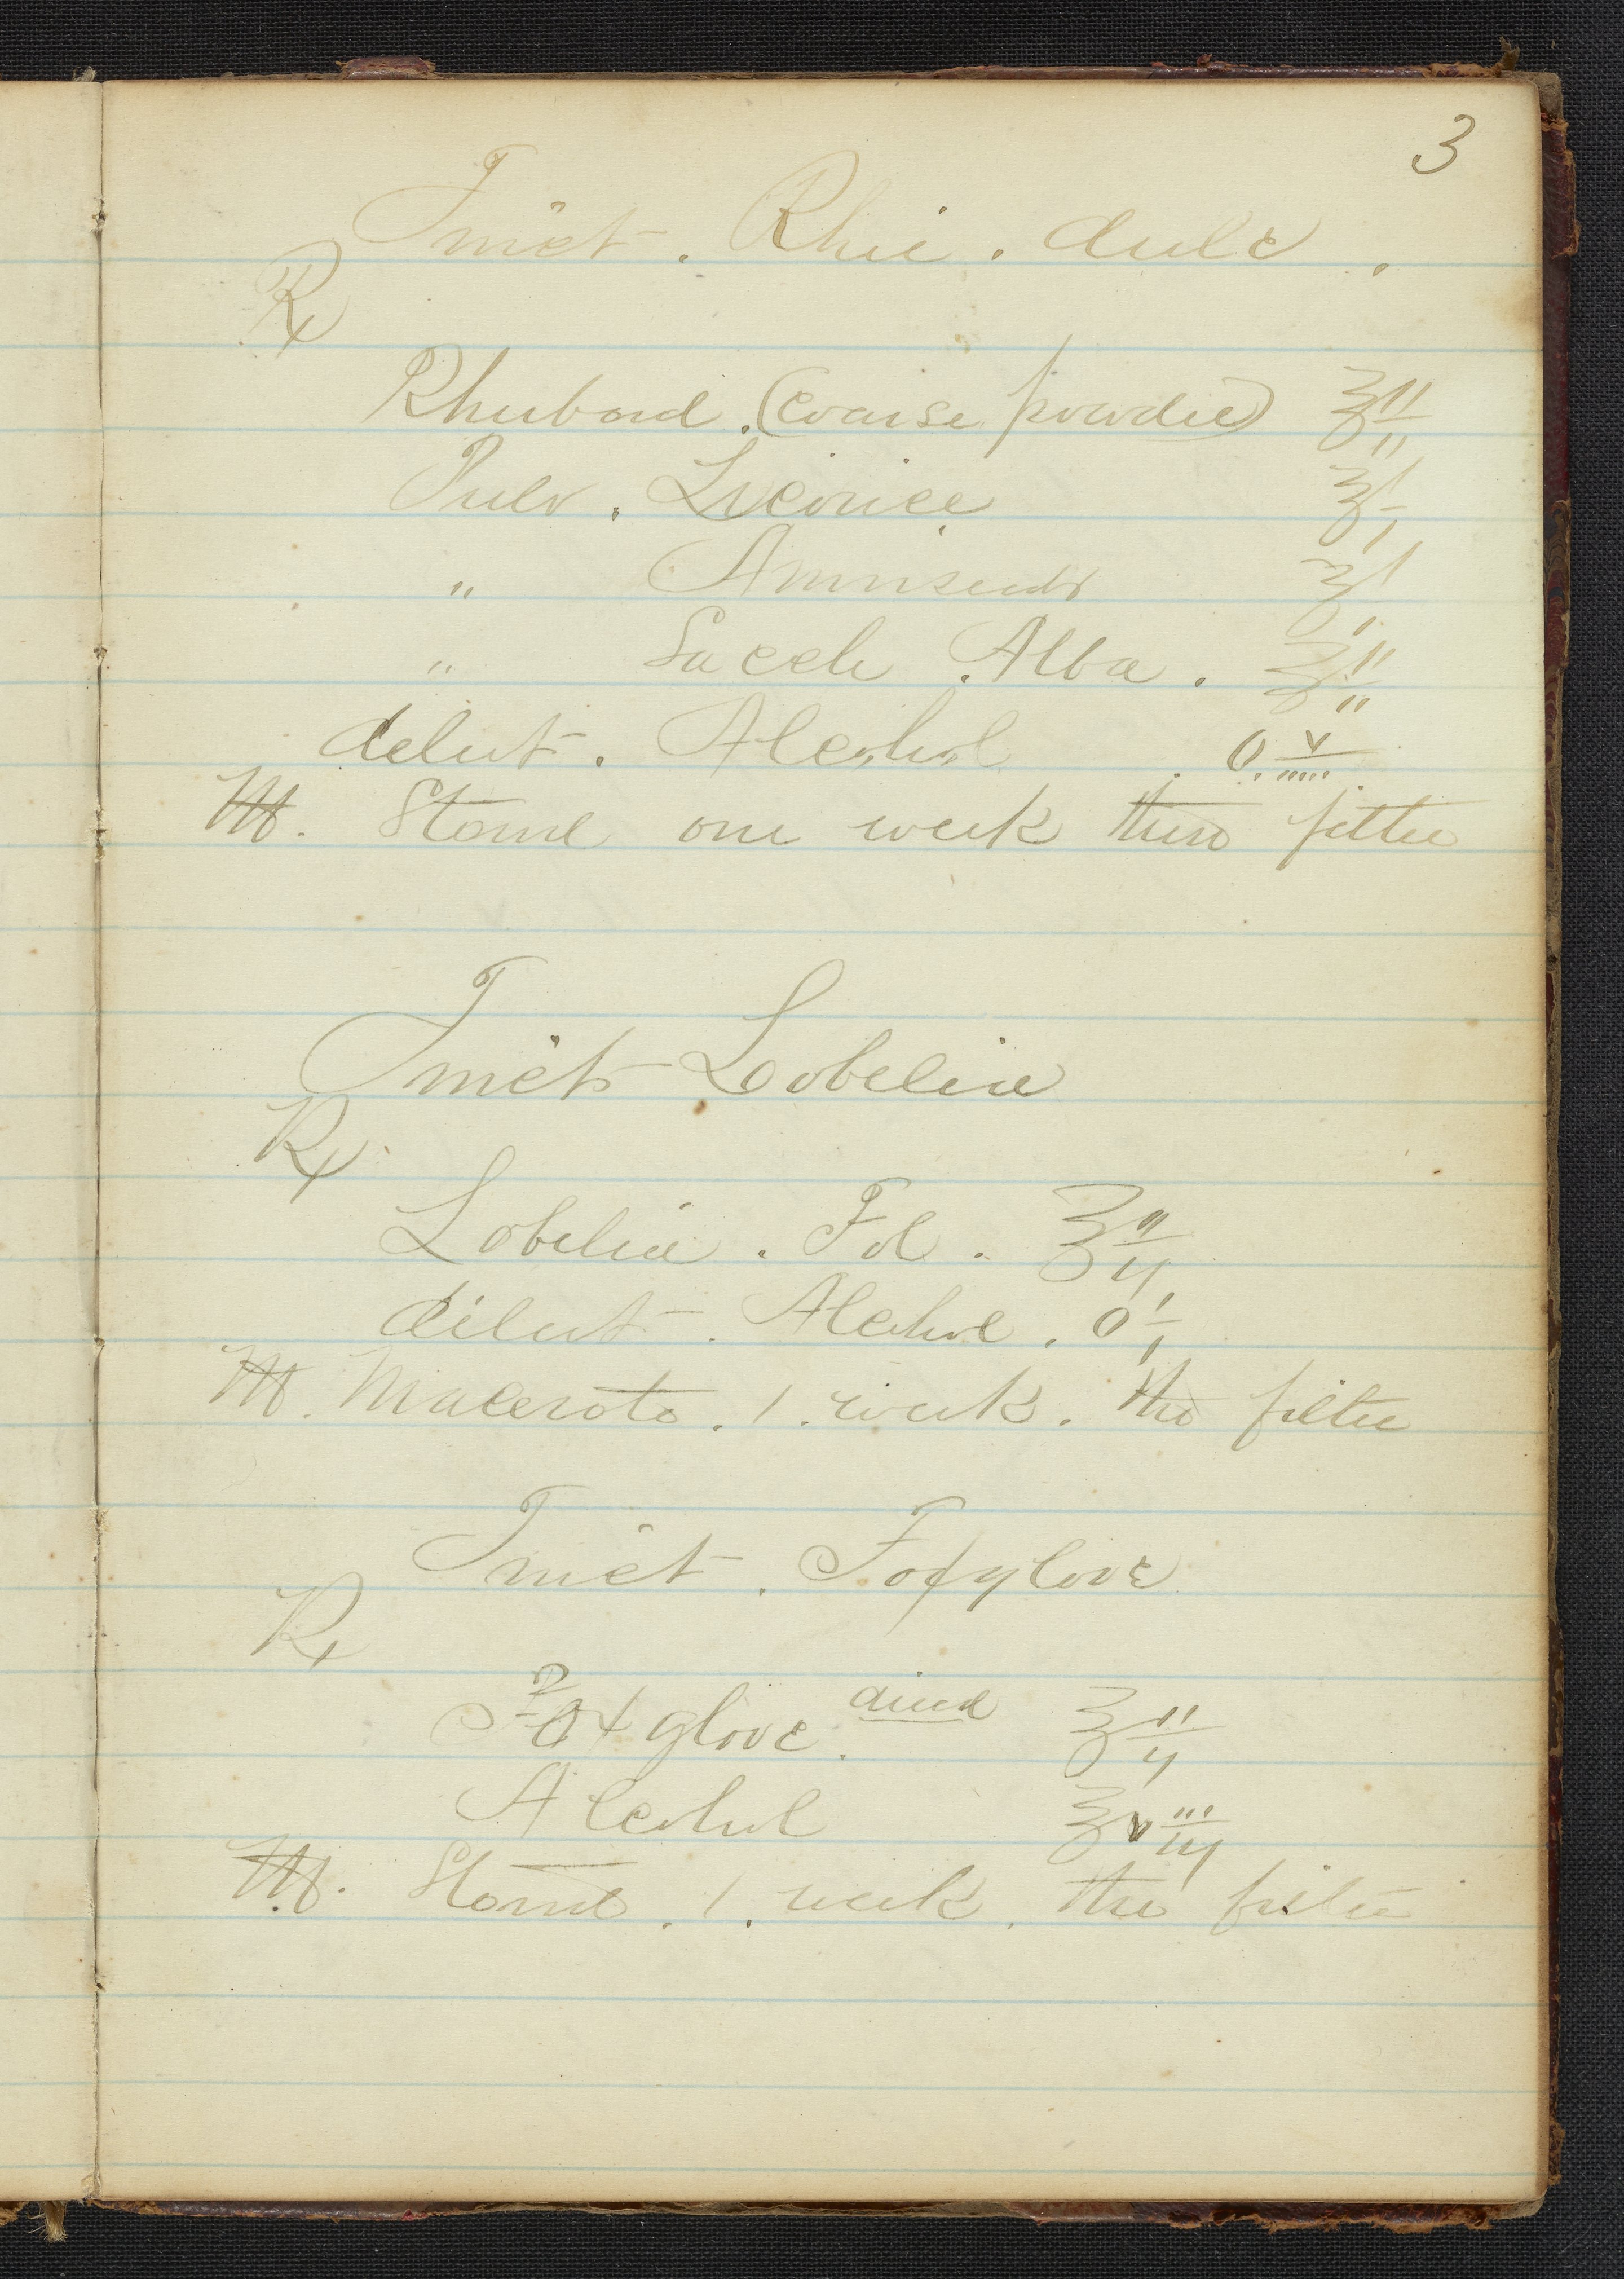 3
Tinct. Rhei. dulc.
℞
Rhubard. (coarse powder) ℥ii
Pulv. Licorice ℥i
" Anniseeds ℥i
" Sacch. Alba. ℥ii
dilut. Alcohol. O.v
M. Stand one week then filter
Tinct Lobelia
℞
Lobelia. Fol. ℥ii
dilut. Alcohol. Oi
M. Macerate. 1. week. then filter
Tinct. Foxglove
℞
Foxglove. dried ℥ii
Alcohol ℥viii
M. Stand. 1. week. then filter